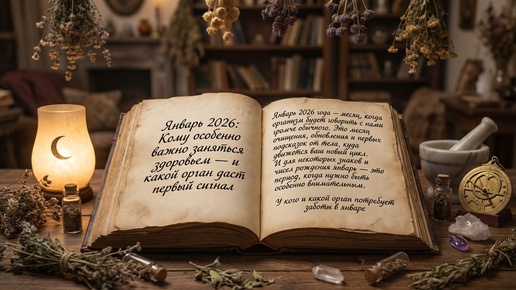 Январь 2026:
Кому особенно
важно заняться
здоровьем — и
какой орган даст
первый сигнал
Январь 2026 года — месяц, когда
организм будет говорить с нами
громче обычного. Это месяц
очищения, обновления и первых
подсказок от тела, куда
движется ваш новый цикл.
И для некоторых знаков и
чисел рождения январь — это
период, когда нужно быть
особенно внимательным.
У кого и какой орган потребует
заботы в январе